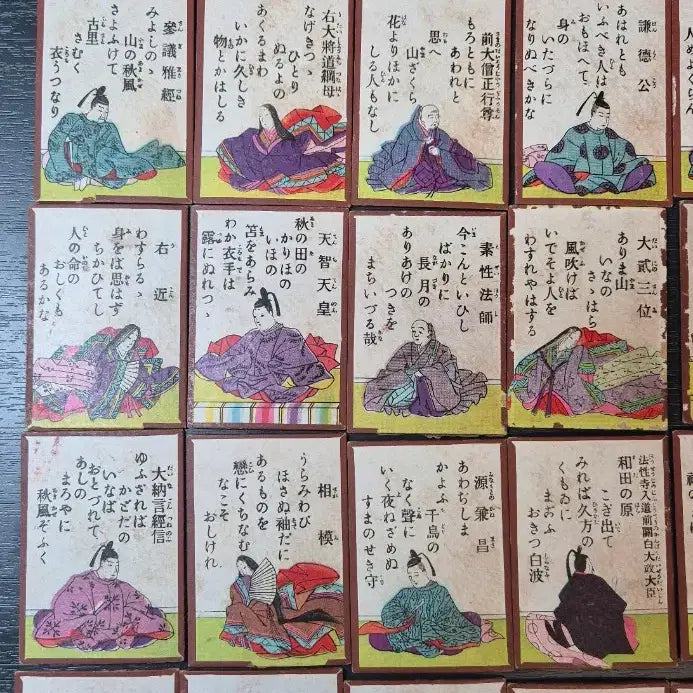 謙德公
あはれとも
いふべき人は
おもほへで
身の
いたづらに
なりぬべきかな
前大僧正行尊
もろともに
あわれと
思へ
山ざくら
花よりほかに
しる人もなし
右大將道綱母
なげきつゝ
ひとり
ぬるよの
あくるまわ
いかに久しき
物とかはしる
參議雅經
みよしの
山の秋風
さよふけて
古里
さむく
衣うつなり
大貳三位
ありま山
いなの
さゝはら
風吹けば
いでそよ人を
わすれやはする
素性法師
今こんといひし
ばかりに
長月の
ありあけの
つきを
まちいづる哉
天智天皇
秋の田の
かりほの
いほの
苫をあらみ
わか衣手は
露にぬれつゝ
右近
わすらるゝ
身をば思はず
ちかひてし
人の命の
おしくも
あるかな
法性寺入道前關白大政大臣
和田の原
こぎ出て
みれば久方の
くもゐに
まがふ
おきつ白波
源兼昌
あわぢしま
かよふ
千鳥の
なく聲に
いく夜ねざめぬ
すまのせき守
相模
うらみわび
ほさぬ袖だに
あるものを
戀にくちなむ
なこそ
おしけれ
大納言經信
ゆふざれば
かどたの
いなば
おとづれて
あしの
まろやに
秋風ぞふく